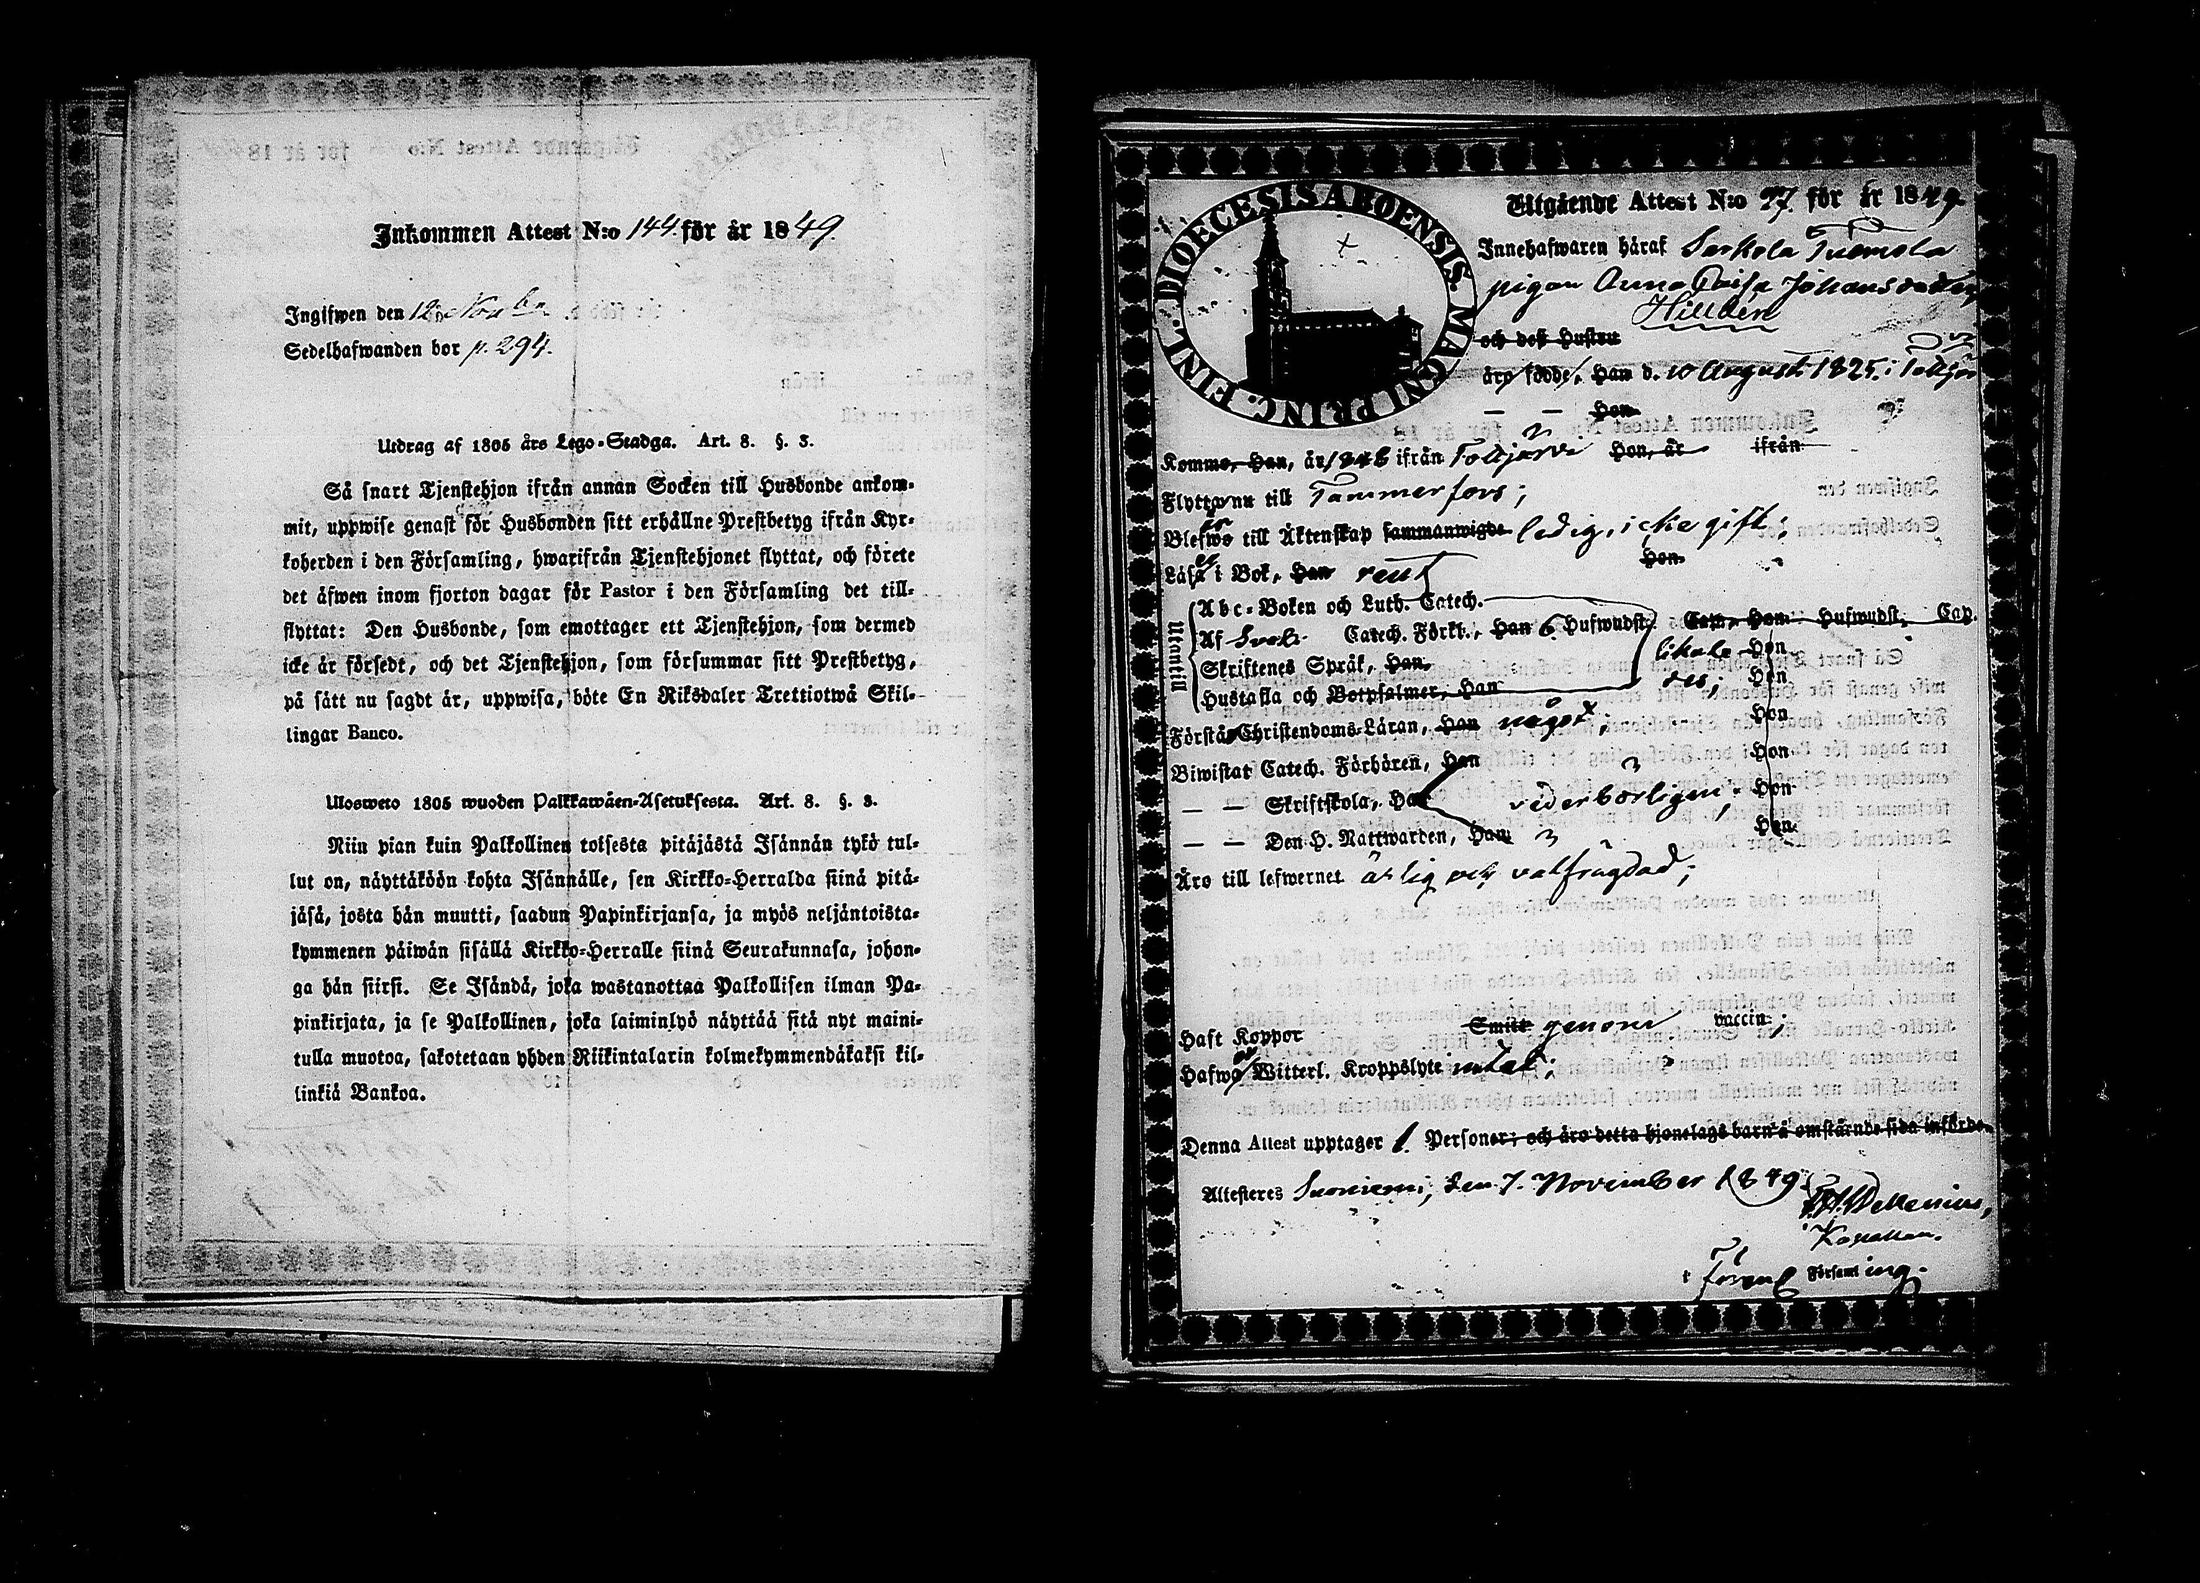 Inkommen Attest N:o 144. för år 1849.
Ingifwen den 12 Novbr.
Sedelhafwanden bor p. 294.
Utdrag af 1805 års Lego-Stadga. Art. 8. §. 3.
Så snart Tjenstehjon ifrån annan Socken till Husbonde ankom-
mit, uppwise genast för Husbonden sitt erhållne Prestbetyg ifrån Kyr-
koherden i den Församling, hwarifrån Tjenstehjonet flyttat, och förete
det äfwen inom fjorton dagar för Pastor i den Församling det till-
flyttat: Den Husbonde, som emottager ett Tjenstehjon, som dermed
icke är försedt, och det Tjenstehjon, som försummar sitt Prestbetyg,
på sätt nu sagdt är, uppwisa, böte En Riksdaler Trettiotwå Skil-
lingar Banco.
Ulosweto 1805 wuoden Palkkawäen-Asetuksesta. Art. 8. §. 3.
Niin pian kuin Palkollinen toisesta pitäjästä Isännän tykö tul-
lut on, näyttäköön kohta Isännälle, sen Kirkko-Herralda siinä pitä-
jäsä, josta hän muutti, saadun Papinkirjansa, ja myös neljäntoista-
kymmenen päiwän sisällä Kirkko-Herralle siinä Seurakunnasa, johon-
ga hän siirsi. Se Isändä, joka wastanottaa Palkollisen ilman Pa-
pinkirjata, ja se Palkollinen, joka laiminlyö näyttää sitä nyt maini-
tulla muotoa, sakotetaan yhden Riikintalarin kolmekymmendäkaksi kil-
linkiä Bankoa.
FINL. DIOECESIS ABOENSIS. MAGNI PRINC.
Utgående Attest N:o 77. för år 1849.
Innehafwaren häraf Sarkola Tuomola
pigan Anna Caisa Johansdotter
Hilldén
och deß Hustru
äro födde, Han d. 10 August. 1825. i Tottijärvi
— — Hon
Kommo, Han, år 1846 ifrån Tottjärvi Hon, år ifrån
Flytta nu till Tammerfors;
Blefwo till Äktenskap sammanwigde ledig, icke gift;
Läsa i Bok, Han rent Hon
Utantill
Abc-Boken och Luth. Catech.
Af Sveb. Catech. Förkl., Han 6 Hufwudst. Cap., Hon Hufwudst. Cap.
Skriftenes Språk, Han likale- Hon
Hustafla och Botpsalmer, Han des; Hon
Förstå Christendoms-Läran, Han något; Hon
Biwistat Catech. Förhören, Han Hon
— — Skriftskola, Han vederbörligen; Hon
— — Den H. Nattwarden, Han Hon
Äro till lefwernet ärlig och välfrägdad;
Haft Koppor Smitt genom vaccin;
Hafwa Witterl. Kroppslyte intet;
Denna Attest upptager 1. Personer; och äro detta hjonelags barn å omstående sida införde
Attesteres Suoniemi, den 7. November 1849.
Kapellan.
i Församling.